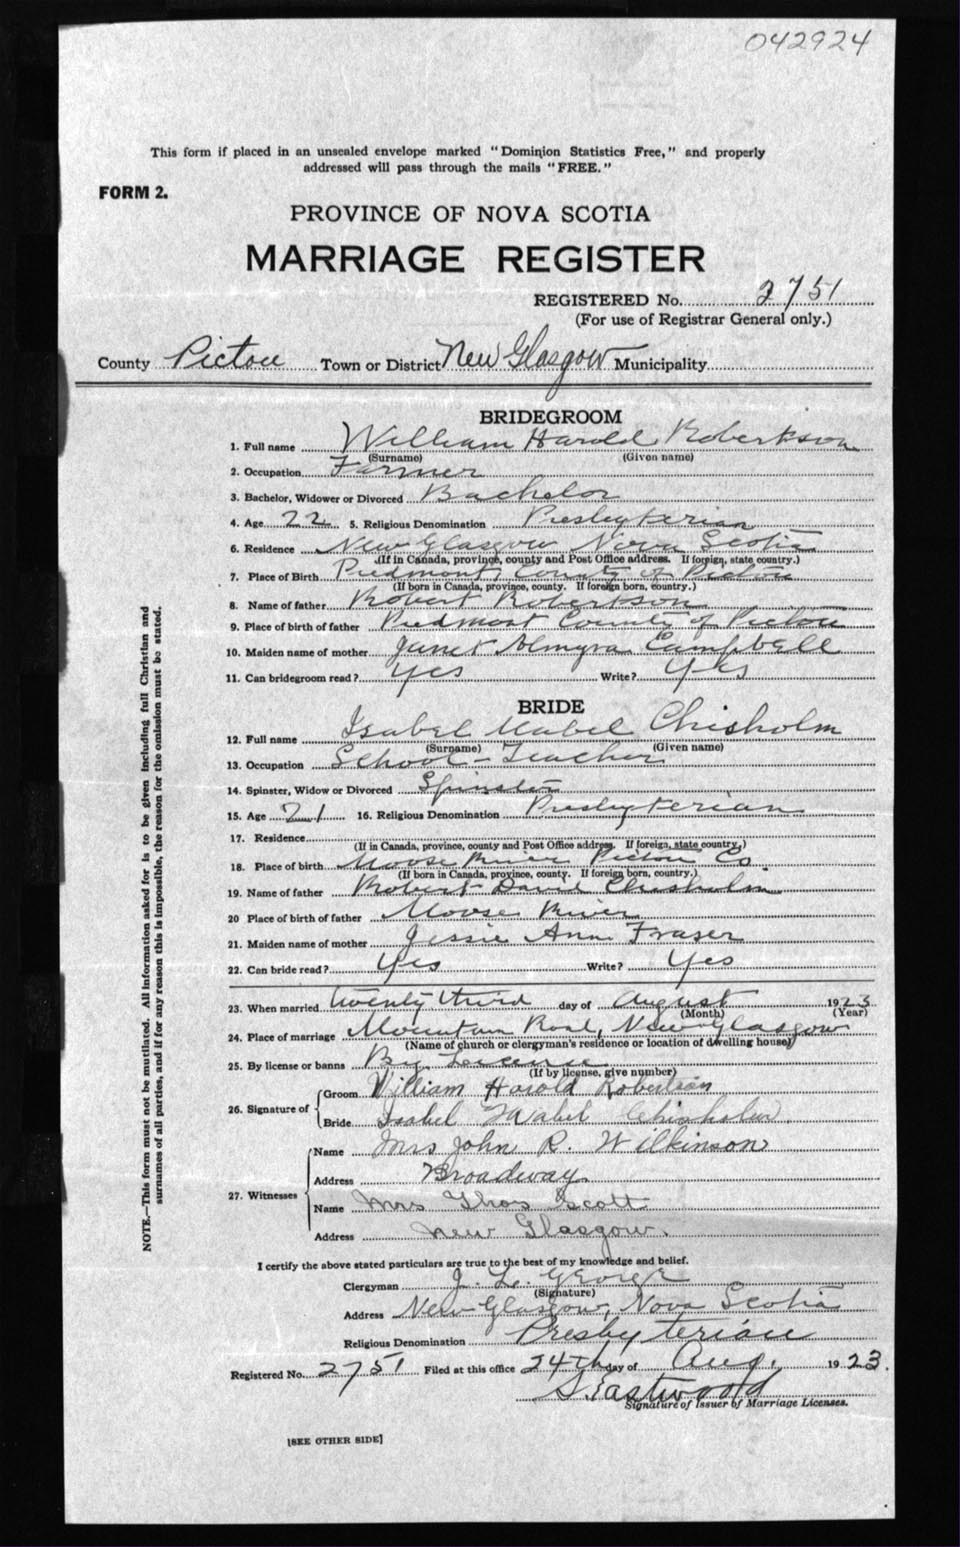 042924
This form if placed in an unsealed envelope marked "Dominion Statistics Free," and properly
addressed will pass through the mails "FREE."
FORM 2.
PROVINCE OF NOVA SCOTIA
MARRIAGE REGISTER
REGISTERED No. 2751
(For use of Registrar General only.)
County Pictou Town or District New Glasgow Municipality
BRIDEGROOM
1. Full name William Harold Robertson
(Surname) (Given name)
2. Occupation Farmer
3. Bachelor, Widower or Divorced Bachelor
4. Age 22 5. Religious Denomination Presbyterian
6. Residence New Glasgow Nova Scotia
(If in Canada, province, county and Post Office address. If foreign, state country.)
7. Place of Birth Piedmont, County of Pictou
(If born in Canada, province, county. If foreign born, country.)
8. Name of father Robert Robertson
9. Place of birth of father Piedmont County of Pictou
10. Maiden name of mother Janet Almyra Campbell
11. Can bridegroom read? Yes Write? Yes
BRIDE
12. Full name Isabel Mabel Chisholm
(Surname) (Given name)
13. Occupation School-Teacher
14. Spinster, Widow or Divorced Spinster
15. Age 21 16. Religious Denomination Presbyterian
17. Residence
(If in Canada, province, county and Post Office address. If foreign, state country.)
18. Place of birth Moose River Pictou Co
(If born in Canada, province, county. If foreign born, country.)
19. Name of father Robert David Chisholm
20 Place of birth of father Moose River
21. Maiden name of mother Jessie Ann Fraser
22. Can bride read? Yes Write? Yes
23. When married twenty third day of August 1923
(Month) (Year)
24. Place of marriage Mountain Road, New Glasgow
(Name of church or clergyman's residence or location of dwelling house)
25. By license or banns By License
(If by license, give number)
26. Signature of Groom William Harold Robertson
Bride Isabel Mabel Chisholm
27. Witnesses Name Mrs John R. Wilkinson
Address Broadway
Name Mrs Thos Scott
Address New Glasgow.
I certify the above stated particulars are true to the best of my knowledge and belief.
Clergyman J. L. George
(Signature)
Address New Glasgow, Nova Scotia
Religious Denomination Presbyterian
Registered No. 2751 Filed at this office 24th day of Aug. 1923.
S. Eastwood
Signature of Issuer of Marriage Licenses.
[SEE OTHER SIDE]
NOTE.—This form must not be mutilated. All information asked for is to be given including full Christian and
surnames of all parties, and if for any reason this is impossible, the reason for the omission must be stated.